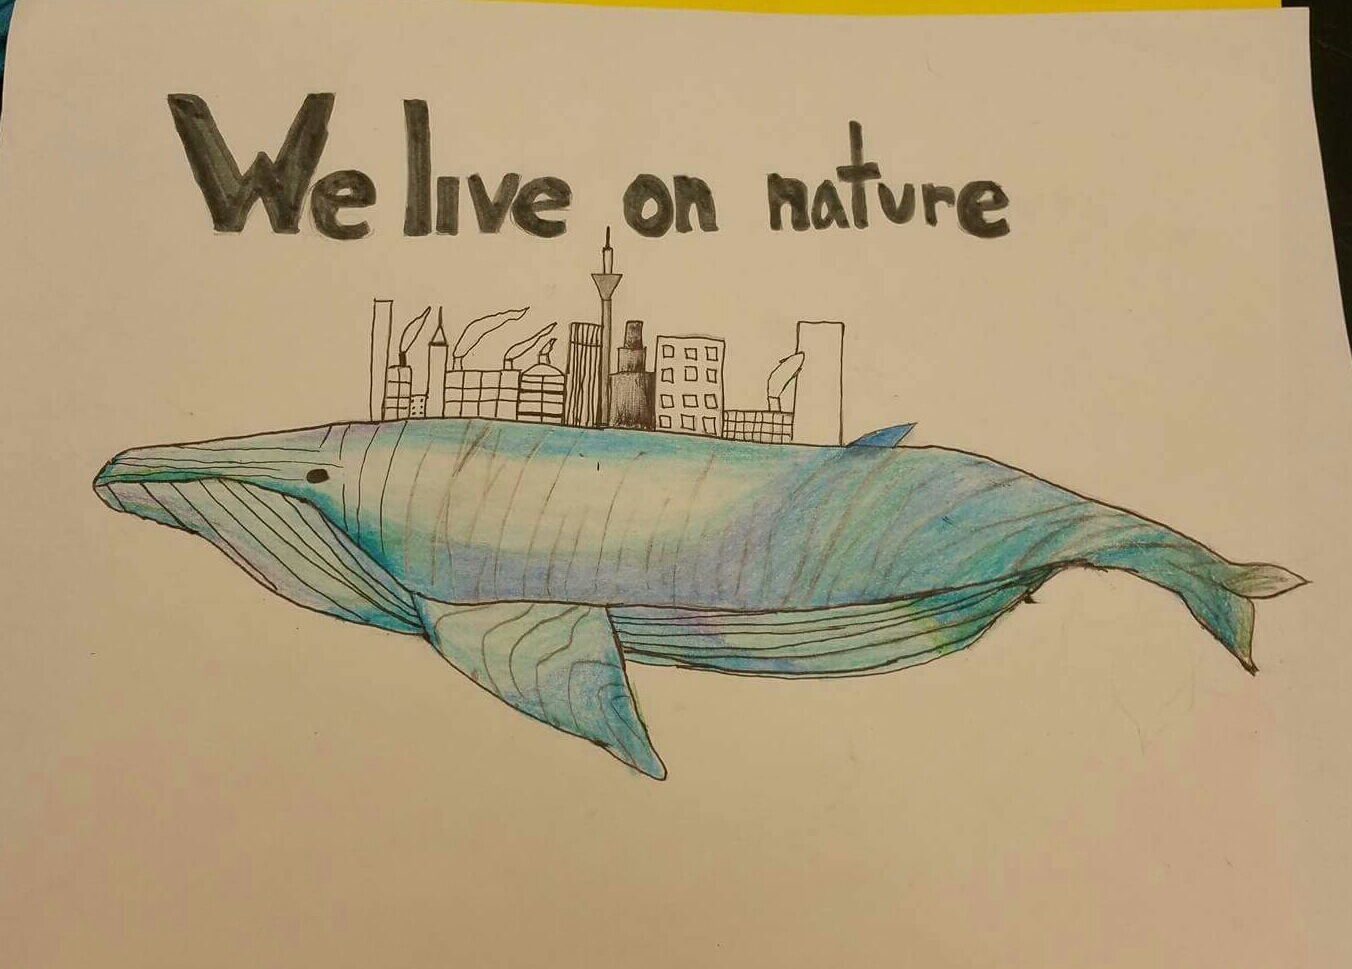 We live on nature